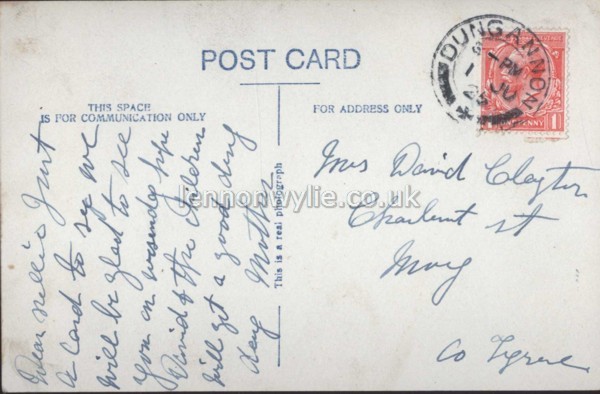 POST CARD
THIS SPACE
IS FOR COMMUNICATION ONLY
FOR ADDRESS ONLY
This is a real photograph
DUNGANNON
PM
1 JU
PENNY
1
Dear Nellie Just
a Card to say we
will be glad to see
you on
David & the Children
will get a good day
Mother
Mrs David Clayton
Charlemt st
Moy
Co Tyrone
lennonwylie.co.uk